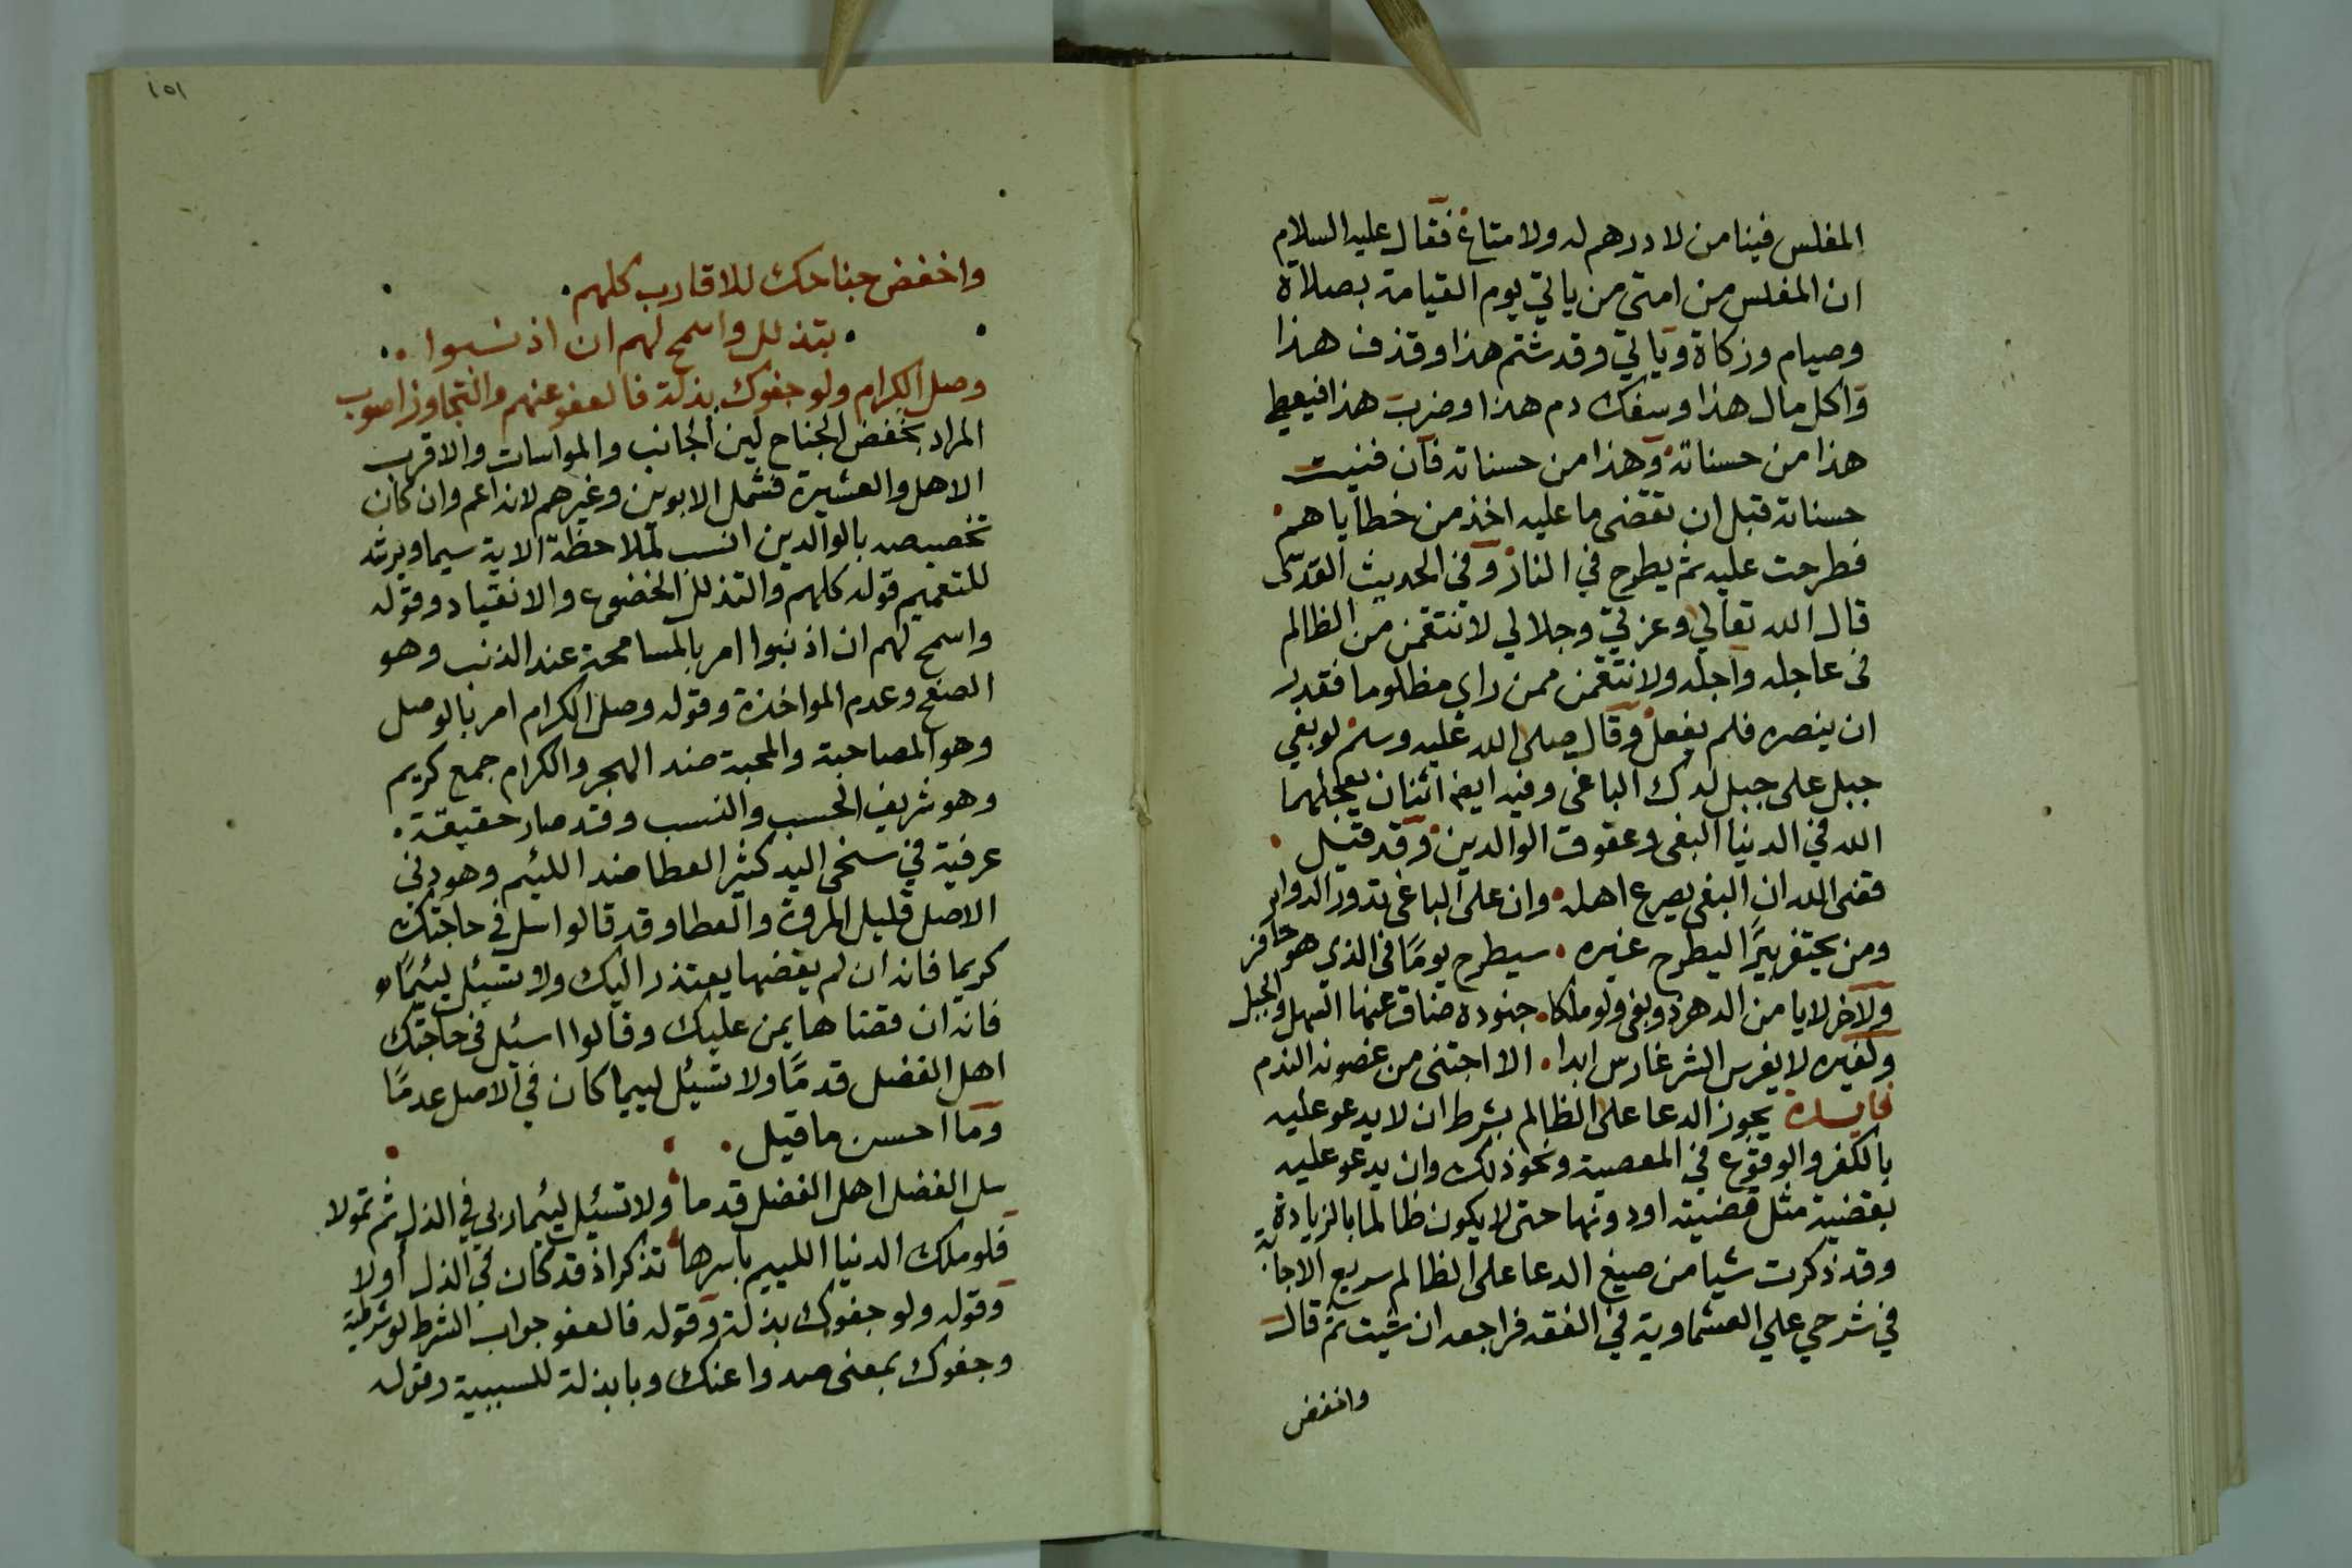 المفلس فينا من لا درهم له ولا متاع فقال عليه السلام
ان المفلس من امتى من ياتي يوم القيامة بصلاة
وصيام وزكاة وياتي وقد شتم هذا وقذف هذا
واكل مال هذا وسفك دم هذا وضرب هذا فيعطى
هذا من حسناته وهذا من حسناته فان فنيت
حسناته قبل ان تقضى ما عليه اخذ من خطاياهم
فطرحت عليه ثم يطرح في النار وفي الحديث القدسى
قال الله تعالي وعزتي وجلالي لانتقمن من الظالم
في عاجله واجله ولانتقمن ممن راي مظلوما فقدر
ان ينصره فلم يفعل وقال صلى الله عليه وسلم لو بغي
جبل على جبل لدك الباغى وفيه ايضا اثنان يعجلهما
الله في الدنيا البغى وعقوق الوالدين وقد قيل
قضى الله ان البغى يصرع اهله وان على الباغى تدور الدواير
ومن يحتفر بيرًا ليطرح غيره سيطرح يومًا في الذي هو حافر
ولاخر لا يامن الدهر ذو بغى ولو ملكا جنوده ضاق عنها السهل والجبل
ولغيره لا يغرس الشر غارس ابدا الا اجتنى من غصونه الندم
فايدة يجوز الدعا على الظالم بشرط ان لا يدعو عليه
بالكفر والوقوع في المعصية ونحو ذلك وان يدعو عليه
بقضية مثل قضيته او دونها حتى لا يكون ظالما بالزيادة
وقد ذكرت شيا من صيغ الدعا على الظالم سريع الاجابة
في شرحي علي العشماوية في الفقه فراجعه ان شيت ثم قال
واخفض
١٥١
واخفض جناحك للاقارب كلهم
بتذلل واسمح لهم ان اذنبوا
وصل الكرام ولو جفوك بذلة فالعفو عنهم والتجاوز اصوب
المراد بخفض الجناح لين الجانب والمواسات والاقرب
الاهل والعشيرة فشمل الابوين وغيرهم لانه اعم وان كان
تخصيصه بالوالدين انسب لملاحظة الاية سيما ويرشد
للتعميم قوله كلهم والتذلل الخضوع والانقياد وقوله
واسمح لهم ان اذنبوا امر بالمسامحة عند الذنب وهو
الصفح وعدم المواخذة وقوله وصل الكرام امر بالوصل
وهو المصاحبة والمحبة ضد الهجر والكرام جمع كريم
وهو شريف الحسب والنسب وقد صار حقيقة
عرفية في سخى اليد كثير العطا ضد اللئيم وهو دني
الاصل قليل المروة والعطا وقد قالوا اسل في حاجتك
كريما فانه ان لم يقضها يعتذر اليك ولا تسئل لئيمًا
فانه ان قضاها يمن عليك وقالوا اسئل في حاجتك
اهل الفضل قدمًا ولا تسئل لييما كان في الاصل عدمًا
وما احسن ما قيل
سل الفضل اهل الفضل قدما ولا تسئل لئيما ربي في الذل ثم تمولا
فلو ملك الدنيا اللييم باسرها تذكر اذ قد كان في الذل اولا
وقوله ولو جفوك بذلة وقوله فالعفو جواب الشرط لو شرطية
وجفوك بمعنى صدوا عنك وبا بذلة للسببية وقوله